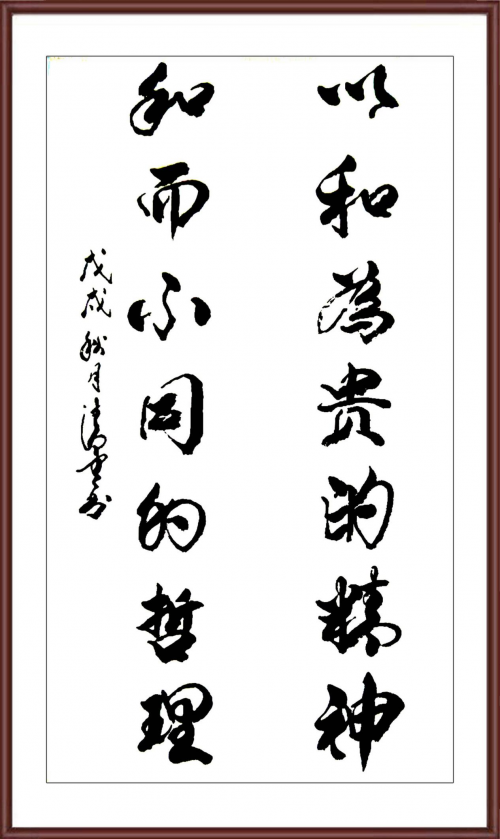 以和為贵的精神
和而不同的哲理
戊戌秋月清云书